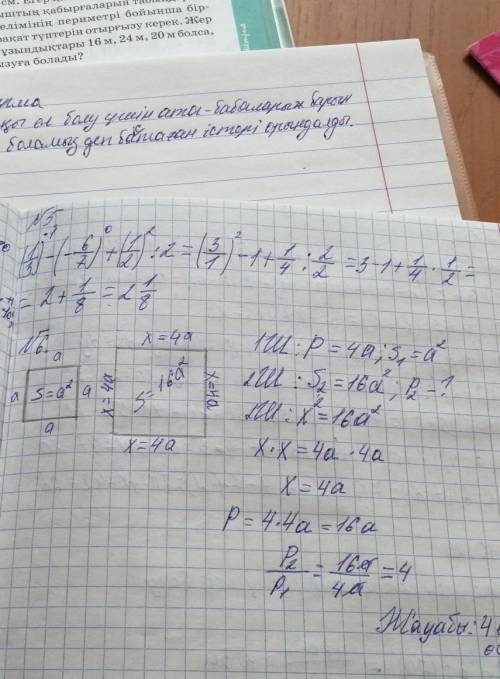 см.
ыштың қабырғаларын
елімінің периметрі бойынша бір-
ракат түптерін отырғызу керек. Жер
ұзындықтары 16 м, 24 м, 20 м болса,
ызуға болады?
ел болу үшін ата-бабаларым барын
боламыз деп бастаған істері орындалды.
№5
(1/3)^-1 - (-6/7)^0 + (1/2)^2 : 2 = (3/1)^2 - 1 + 1/4 : 2/2 = 3 - 1 + 1/4 · 1/2 =
= 2 + 1/8 = 2 1/8
№6.
a
a S = a² a
a
x = 4a
x = 4a S = 16a² x = 4a
x = 4a
1Ш: P = 4a; S₁ = a²
2Ш: S₂ = 16a²; P₂ - ?
2Ш: x² = 16a²
x · x = 4a · 4a
x = 4a
P = 4 · 4a = 16a
P₂/P₁ = 16a/4a = 4
Жауабы: 4